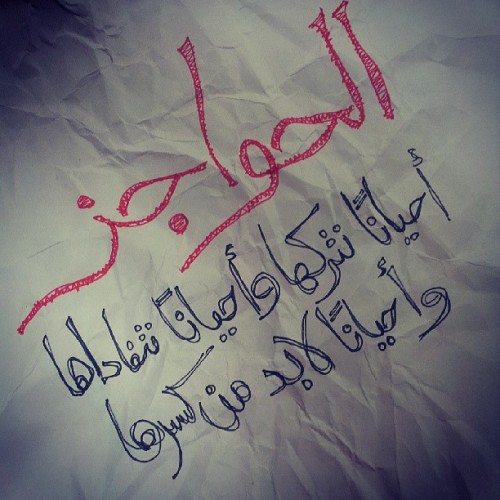 الحواجز
أحيانًا نتركها وأحيانًا نتفاداها
وأحيانًا لابد من كسرها